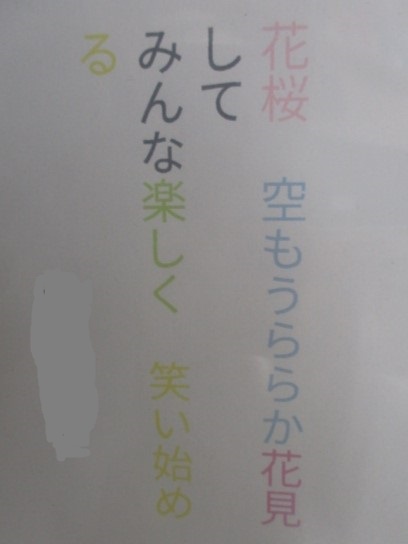 花桜　空もうららか花見
して
みんな楽しく　笑い始め
る